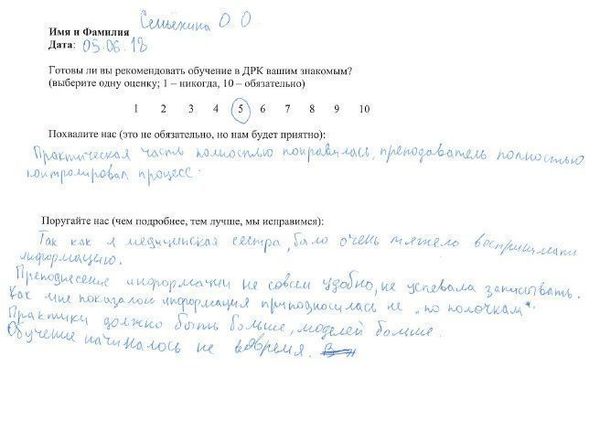 Семёхина О О
Имя и Фамилия
Дата: 05.06.18
Готовы ли вы рекомендовать обучение в ДРК вашим знакомым?
(выберите одну оценку; 1 – никогда, 10 – обязательно)
1 2 3 4 5 6 7 8 9 10
Похвалите нас (это не обязательно, но нам будет приятно):
Практическая часть полностью понравилась, преподаватель полностью
контролировал процесс.
Поругайте нас (чем подробнее, тем лучше, мы исправимся):
Так как я медицинская сестра, было очень тяжело воспринимать
информацию.
Преподнесение информации не совсем удобно, не успевала записывать.
Как мне показалось информация приподносилась не "по полочкам".
Практики должно быть больше, моделей больше.
Обучение начиналось не вовремя.